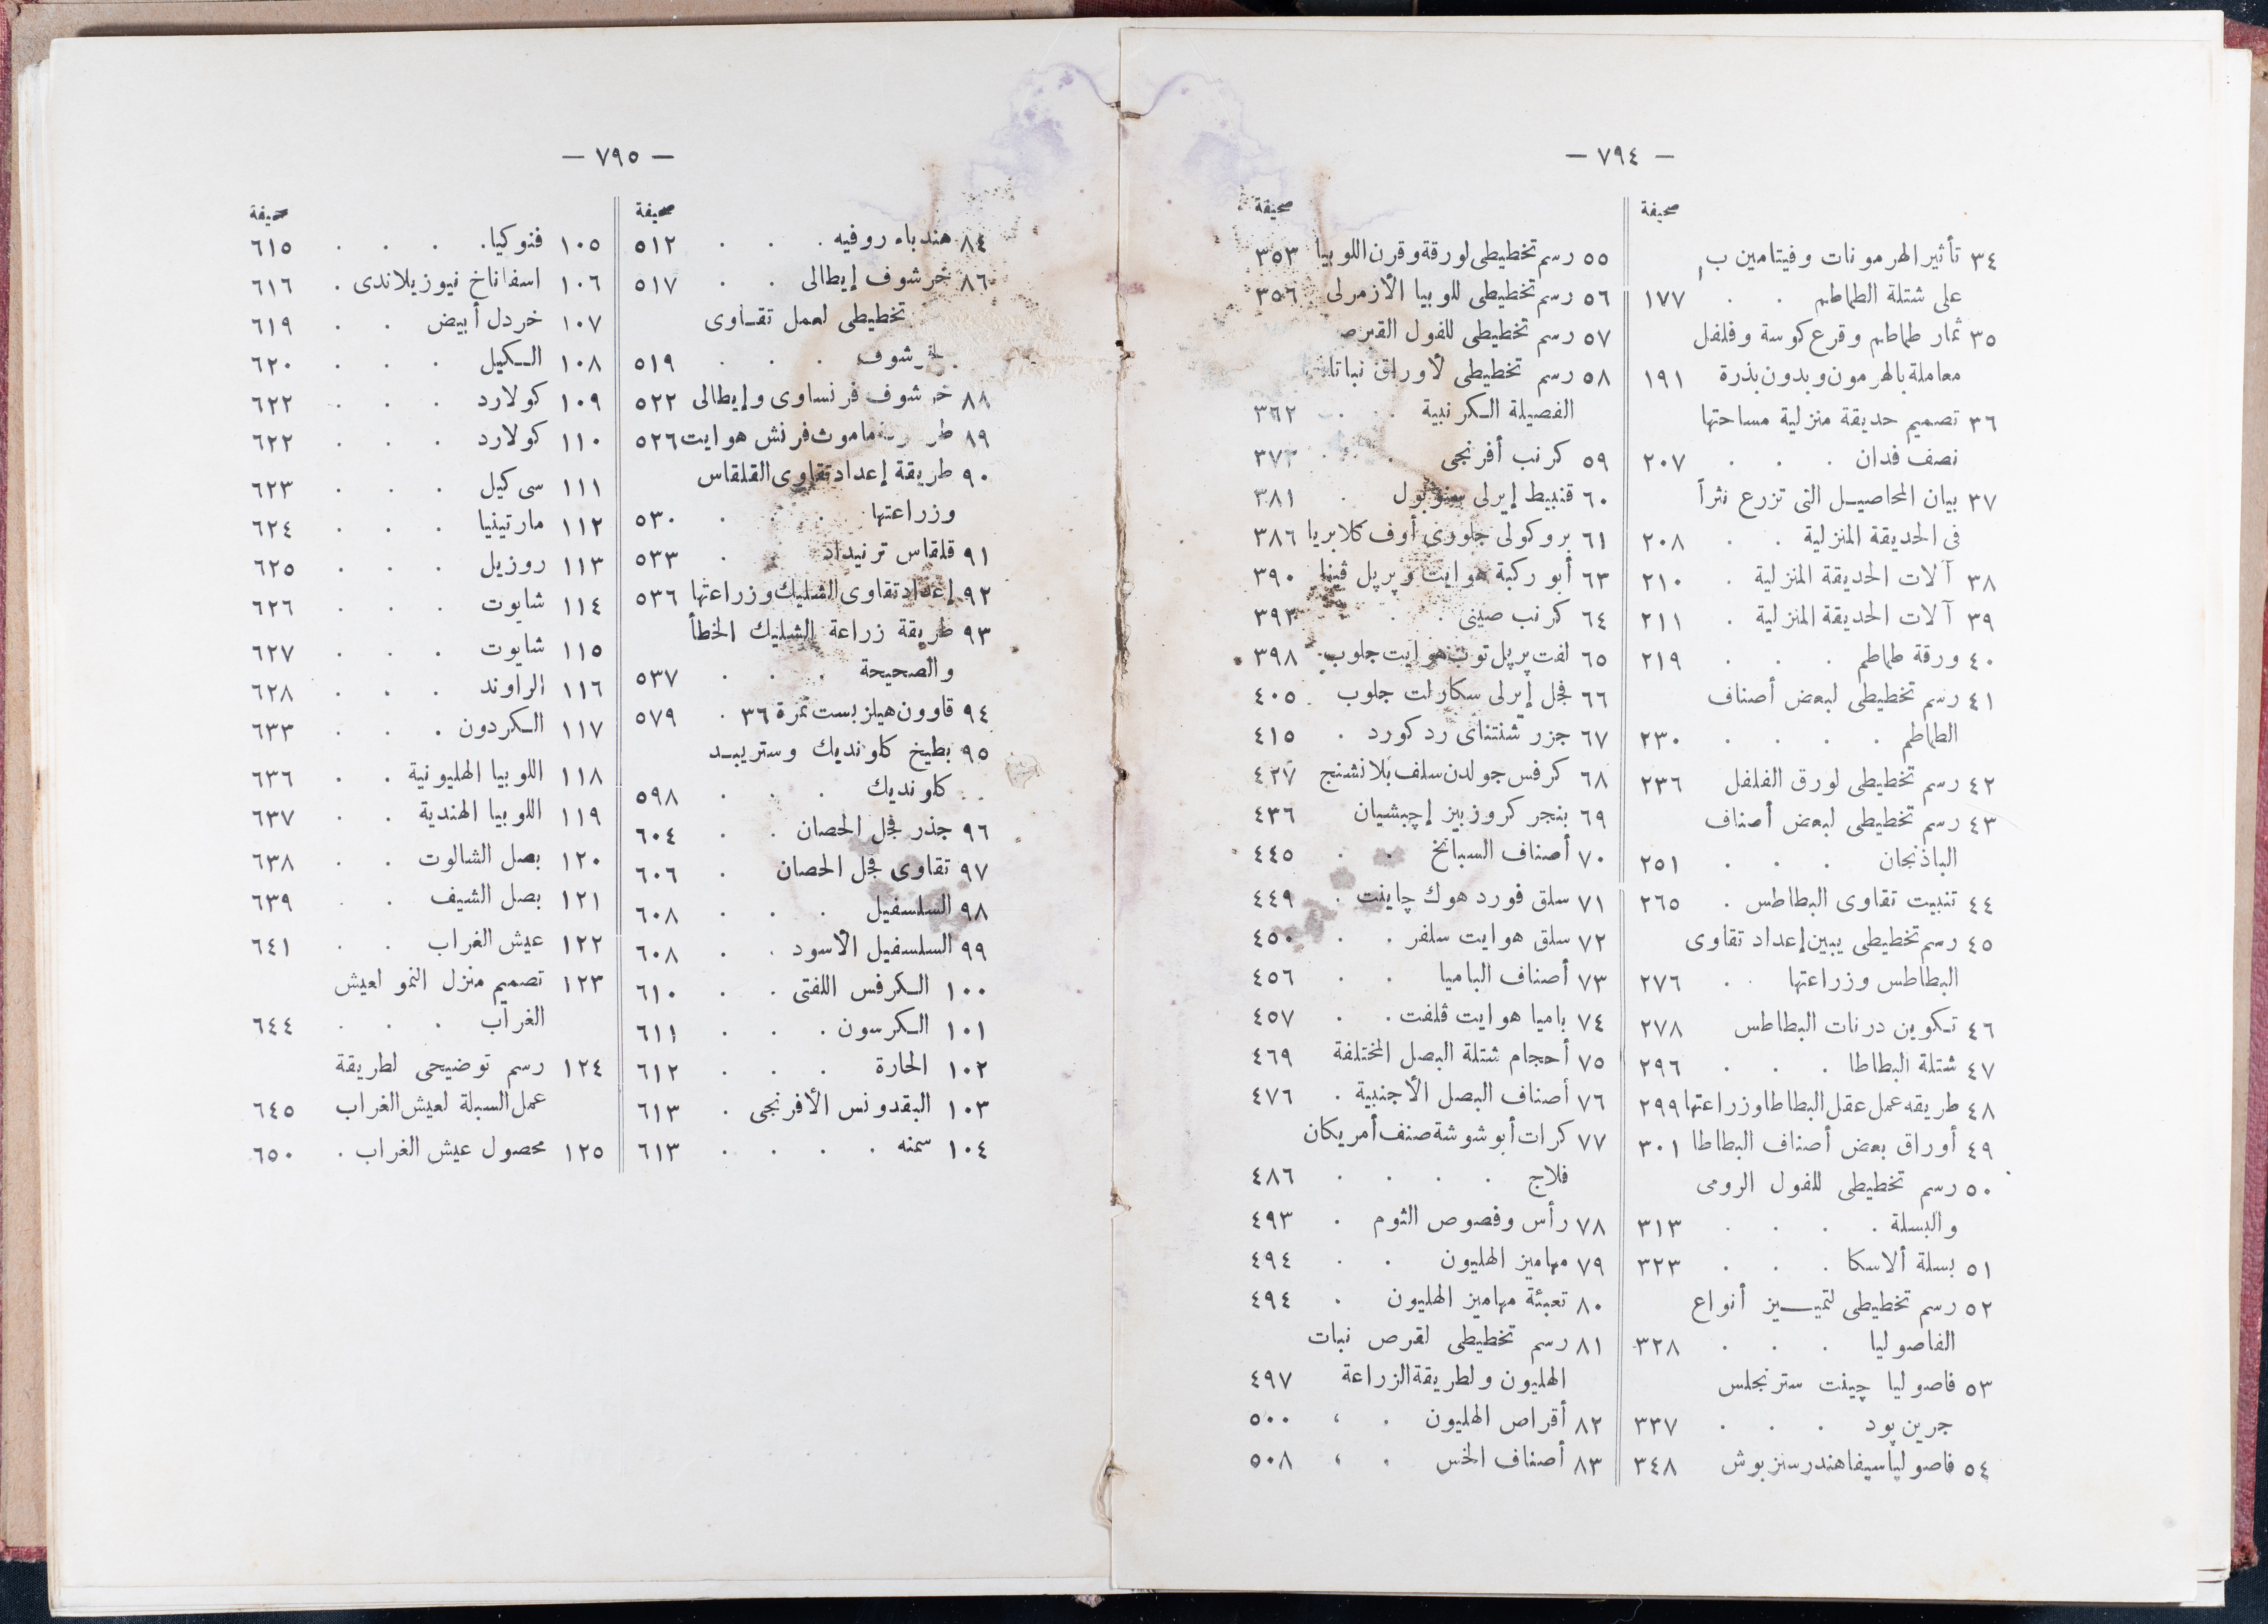 — ٧٩٤ —
صحيفة
٣٤ تأثير الهرمونات وفيتامين ب١
على شتلة الطماطم . . ١٧٧
٣٥ ثمار طماطم وقرع كوسة وفلفل
معاملة بالهرمون وبدون بذرة ١٩١
٣٦ تصميم حديقة منزلية مساحتها
نصف فدان . . . ٢٠٧
٣٧ بيان المحاصيل التى تزرع نثراً
فى الحديقة المنزلية . . ٢٠٨
٣٨ آلات الحديقة المنزلية . ٢١٠
٣٩ آلات الحديقة المنزلية . ٢١١
٤٠ ورقة طماطم . . . ٢١٩
٤١ رسم تخطيطى لبعض أصناف
الطماطم . . . . ٢٣٠
٤٢ رسم تخطيطى لورق الفلفل ٢٣٦
٤٣ رسم تخطيطى لبعض أصناف
الباذنجان . . . ٢٥١
٤٤ تنبيت تقاوى البطاطس . ٢٦٥
٤٥ رسم تخطيطى يبين إعداد تقاوى
البطاطس وزراعتها . . ٢٧٦
٤٦ تكوين درنات البطاطس ٢٧٨
٤٧ شتلة البطاطا . . . ٢٩٦
٤٨ طريقه عمل عقل البطاطا وزراعتها ٢٩٩
٤٩ أوراق بعض أصناف البطاطا ٣٠١
٥٠ رسم تخطيطى للفول الرومى
والبسلة . . . . ٣١٣
٥١ بسلة ألاسكا . . . ٣٢٣
٥٢ رسم تخطيطى لتمييز أنواع
الفاصوليا . . . ٣٢٨
٥٣ فاصوليا چينت سترنجلس
جرين پود . . . ٣٣٧
٥٤ فاصوليا سيفا هندرسنز بوش ٣٤٨
صحيفة
٥٥ رسم تخطيطى لورقة وقرن اللوبيا ٣٥٣
٥٦ رسم تخطيطى للوبيا الأزمرلى ٣٥٦
٥٧ رسم تخطيطى للفول
٥٨ رسم تخطيطى لأوراق نباتات
الفصيلة الكرنبية . . ٣٦٢
٥٩ كرنب أفرنجى . . ٣٧٣
٦٠ قنبيط إيرلى سنوبول . ٣٨١
٦١ بروكولى جلورى أوف كلابريا ٣٨٦
٦٣ أبو ركبة هوايت وپرپل ڤينا ٣٩٠
٦٤ كرنب صينى . . ٣٩٣
٦٥ لفت پرپل توب هوايت جلوب ٣٩٨
٦٦ فجل إيرلى سكارلت جلوب . ٤٠٥
٦٧ جزر شنتناى رد كورد . ٤١٥
٦٨ كرفس جولدن سلف بلانشنج ٤٢٧
٦٩ بنجر كروزبيز إچبشيان ٤٣٦
٧٠ أصناف السبانخ . . ٤٤٥
٧١ سلق فورد هوك چاينت . ٤٤٩
٧٢ سلق هوايت سلفر . . ٤٥٠
٧٣ أصناف الباميا . . ٤٥٦
٧٤ باميا هوايت ڤلفت . . ٤٥٧
٧٥ أحجام شتلة البصل المختلفة ٤٦٩
٧٦ أصناف البصل الأجنبية . ٤٧٦
٧٧ كرات أبو شوشة صنف أمريكان
فلاج . . . . ٤٨٦
٧٨ رأس وفصوص الثوم . ٤٩٣
٧٩ مهاميز الهليون . . ٤٩٤
٨٠ تعبئة مهاميز الهليون . ٤٩٤
٨١ رسم تخطيطى لقرص نبات
الهليون ولطريقة الزراعة ٤٩٧
٨٢ أقراص الهليون . . ٥٠٠
٨٣ أصناف الخس . . ٥٠٨
— ٧٩٥ —
صحيفة
٨٤ هندباء روفيه . . . ٥١٢
٨٦ خرشوف إيطالى . . ٥١٧
تخطيطى لعمل تقاوى
. . . ٥١٩
٨٨ خرشوف فرنساوى وإيطالى ٥٢٢
٨٩ ماموث فرنش هوايت ٥٢٦
٩٠ طريقة إعداد تقاوى القلقاس
وزراعتها . . . ٥٣٠
٩١ قلقاس ترنيداد . . ٥٣٣
٩٢ إعداد تقاوى الشليك وزراعتها ٥٣٦
٩٣ طريقة زراعة الشليك الخطأ
والصحيحة . . . ٥٣٧
٩٤ قاوون هيلز بست نمرة ٣٦ . ٥٧٩
٩٥ بطيخ كلونديك وستريبد
كلونديك . . . ٥٩٨
٩٦ جذر فجل الحصان . . ٦٠٤
٩٧ تقاوى فجل الحصان . ٦٠٦
٩٨ السلسفيل . . . ٦٠٨
٩٩ السلسفيل الأسود . . ٦٠٨
١٠٠ الكرفس اللفتى . . ٦١٠
١٠١ الكرسون . . . ٦١١
١٠٢ الحارة . . . ٦١٢
١٠٣ البقدونس الأفرنجى . ٦١٣
١٠٤ سمنه . . . . ٦١٣
صحيفة
١٠٥ فنوكيا . . . . ٦١٥
١٠٦ اسفاناخ نيوزيلاندى . ٦١٦
١٠٧ خردل أبيض . . ٦١٩
١٠٨ الكيل . . . ٦٢٠
١٠٩ كولارد . . . ٦٢٢
١١٠ كولارد . . . ٦٢٢
١١١ سى كيل . . . ٦٢٣
١١٢ مارتينيا . . . ٦٢٤
١١٣ روزيل . . . ٦٢٥
١١٤ شايوت . . . ٦٢٦
١١٥ شايوت . . . ٦٢٧
١١٦ الراوند . . . ٦٢٨
١١٧ الكردون . . . ٦٣٣
١١٨ اللوبيا الهليونية . . ٦٣٦
١١٩ اللوبيا الهندية . . ٦٣٧
١٢٠ بصل الشالوت . . ٦٣٨
١٢١ بصل الشيف . . ٦٣٩
١٢٢ عيش الغراب . . ٦٤١
١٢٣ تصميم منزل النمو لعيش
الغراب . . . ٦٤٤
١٢٤ رسم توضيحى لطريقة
عمل السبلة لعيش الغراب ٦٤٥
١٢٥ محصول عيش الغراب . ٦٥٠